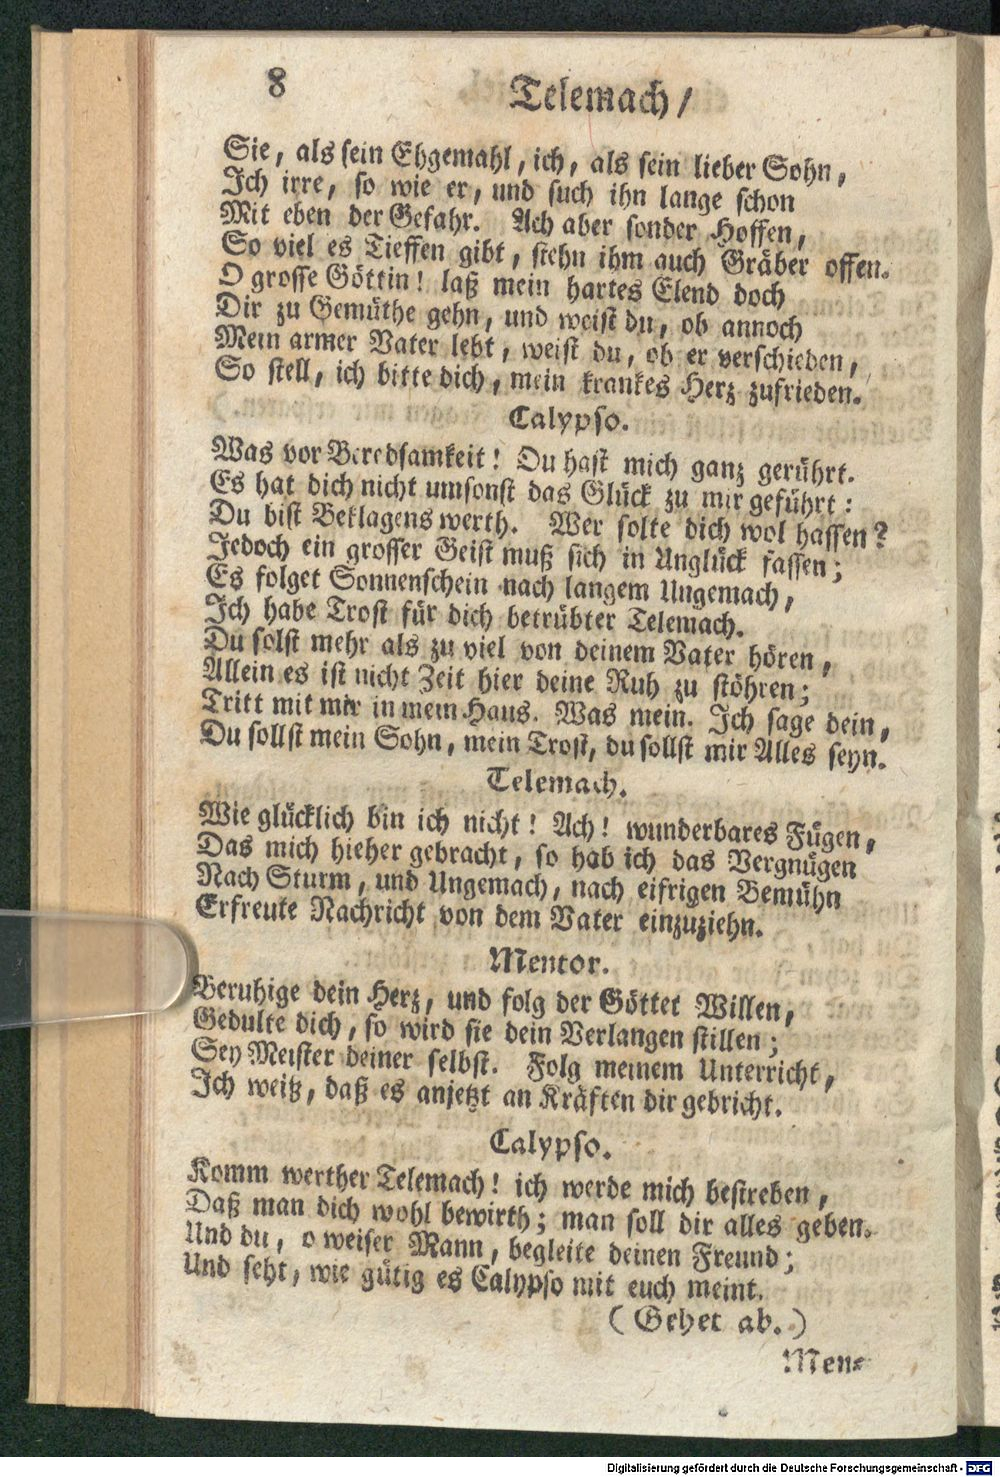 8
Telemach/
Sie, als sein Ehgemahl, ich, als sein lieber Sohn,
Ich irre, so wie er, und such ihn lange schon
Mit eben der Gefahr. Ach aber sonder Hoffen,
So viel es Tieffen gibt, stehn ihm auch Gräber offen.
O grosse Göttin! laß mein hartes Elend doch
Dir zu Gemüthe gehn, und weist du, ob annoch
Mein armer Vater lebt, weist du, ob er verschieden,
So stell, ich bitte dich, mein krankes Herz zufrieden.
Calypso.
Was vor Beredsamkeit! Du hast mich ganz gerührt.
Es hat dich nicht umsonst das Glück zu mir geführt:
Du bist Beklagens werth. Wer solte dich wol hassen?
Jedoch ein grosser Geist muß sich in Unglück fassen;
Es folget Sonnenschein nach langem Ungemach,
Ich habe Trost für dich betrübter Telemach.
Du solst mehr als zu viel von deinem Vater hören,
Allein es ist nicht Zeit hier deine Ruh zu stöhren;
Tritt mit mir in mein Haus. Was mein. Ich sage dein,
Du sollst mein Sohn, mein Trost, du sollst mir Alles seyn.
Telemach.
Wie glücklich bin ich nicht! Ach! wunderbares Fügen,
Das mich hieher gebracht, so hab ich das Vergnügen
Nach Sturm, und Ungemach, nach eifrigen Bemühn
Erfreute Nachricht von dem Vater einzuziehn.
Mentor.
Beruhige dein Herz, und folg der Götter Willen,
Gedulte dich, so wird sie dein Verlangen stillen;
Sey Meister deiner selbst. Folg meinem Unterricht,
Ich weiß, daß es anjetzt an Kräften dir gebricht.
Calypso.
Komm werther Telemach! ich werde mich bestreben,
Daß man dich wohl bewirth; man soll dir alles geben.
Und du, o weiser Mann, begleite deinen Freund;
Und seht, wie gütig es Calypso mit euch meint.
(Gehet ab.)
Men-
Digitalisierung gefördert durch die Deutsche Forschungsgemeinschaft - DFG